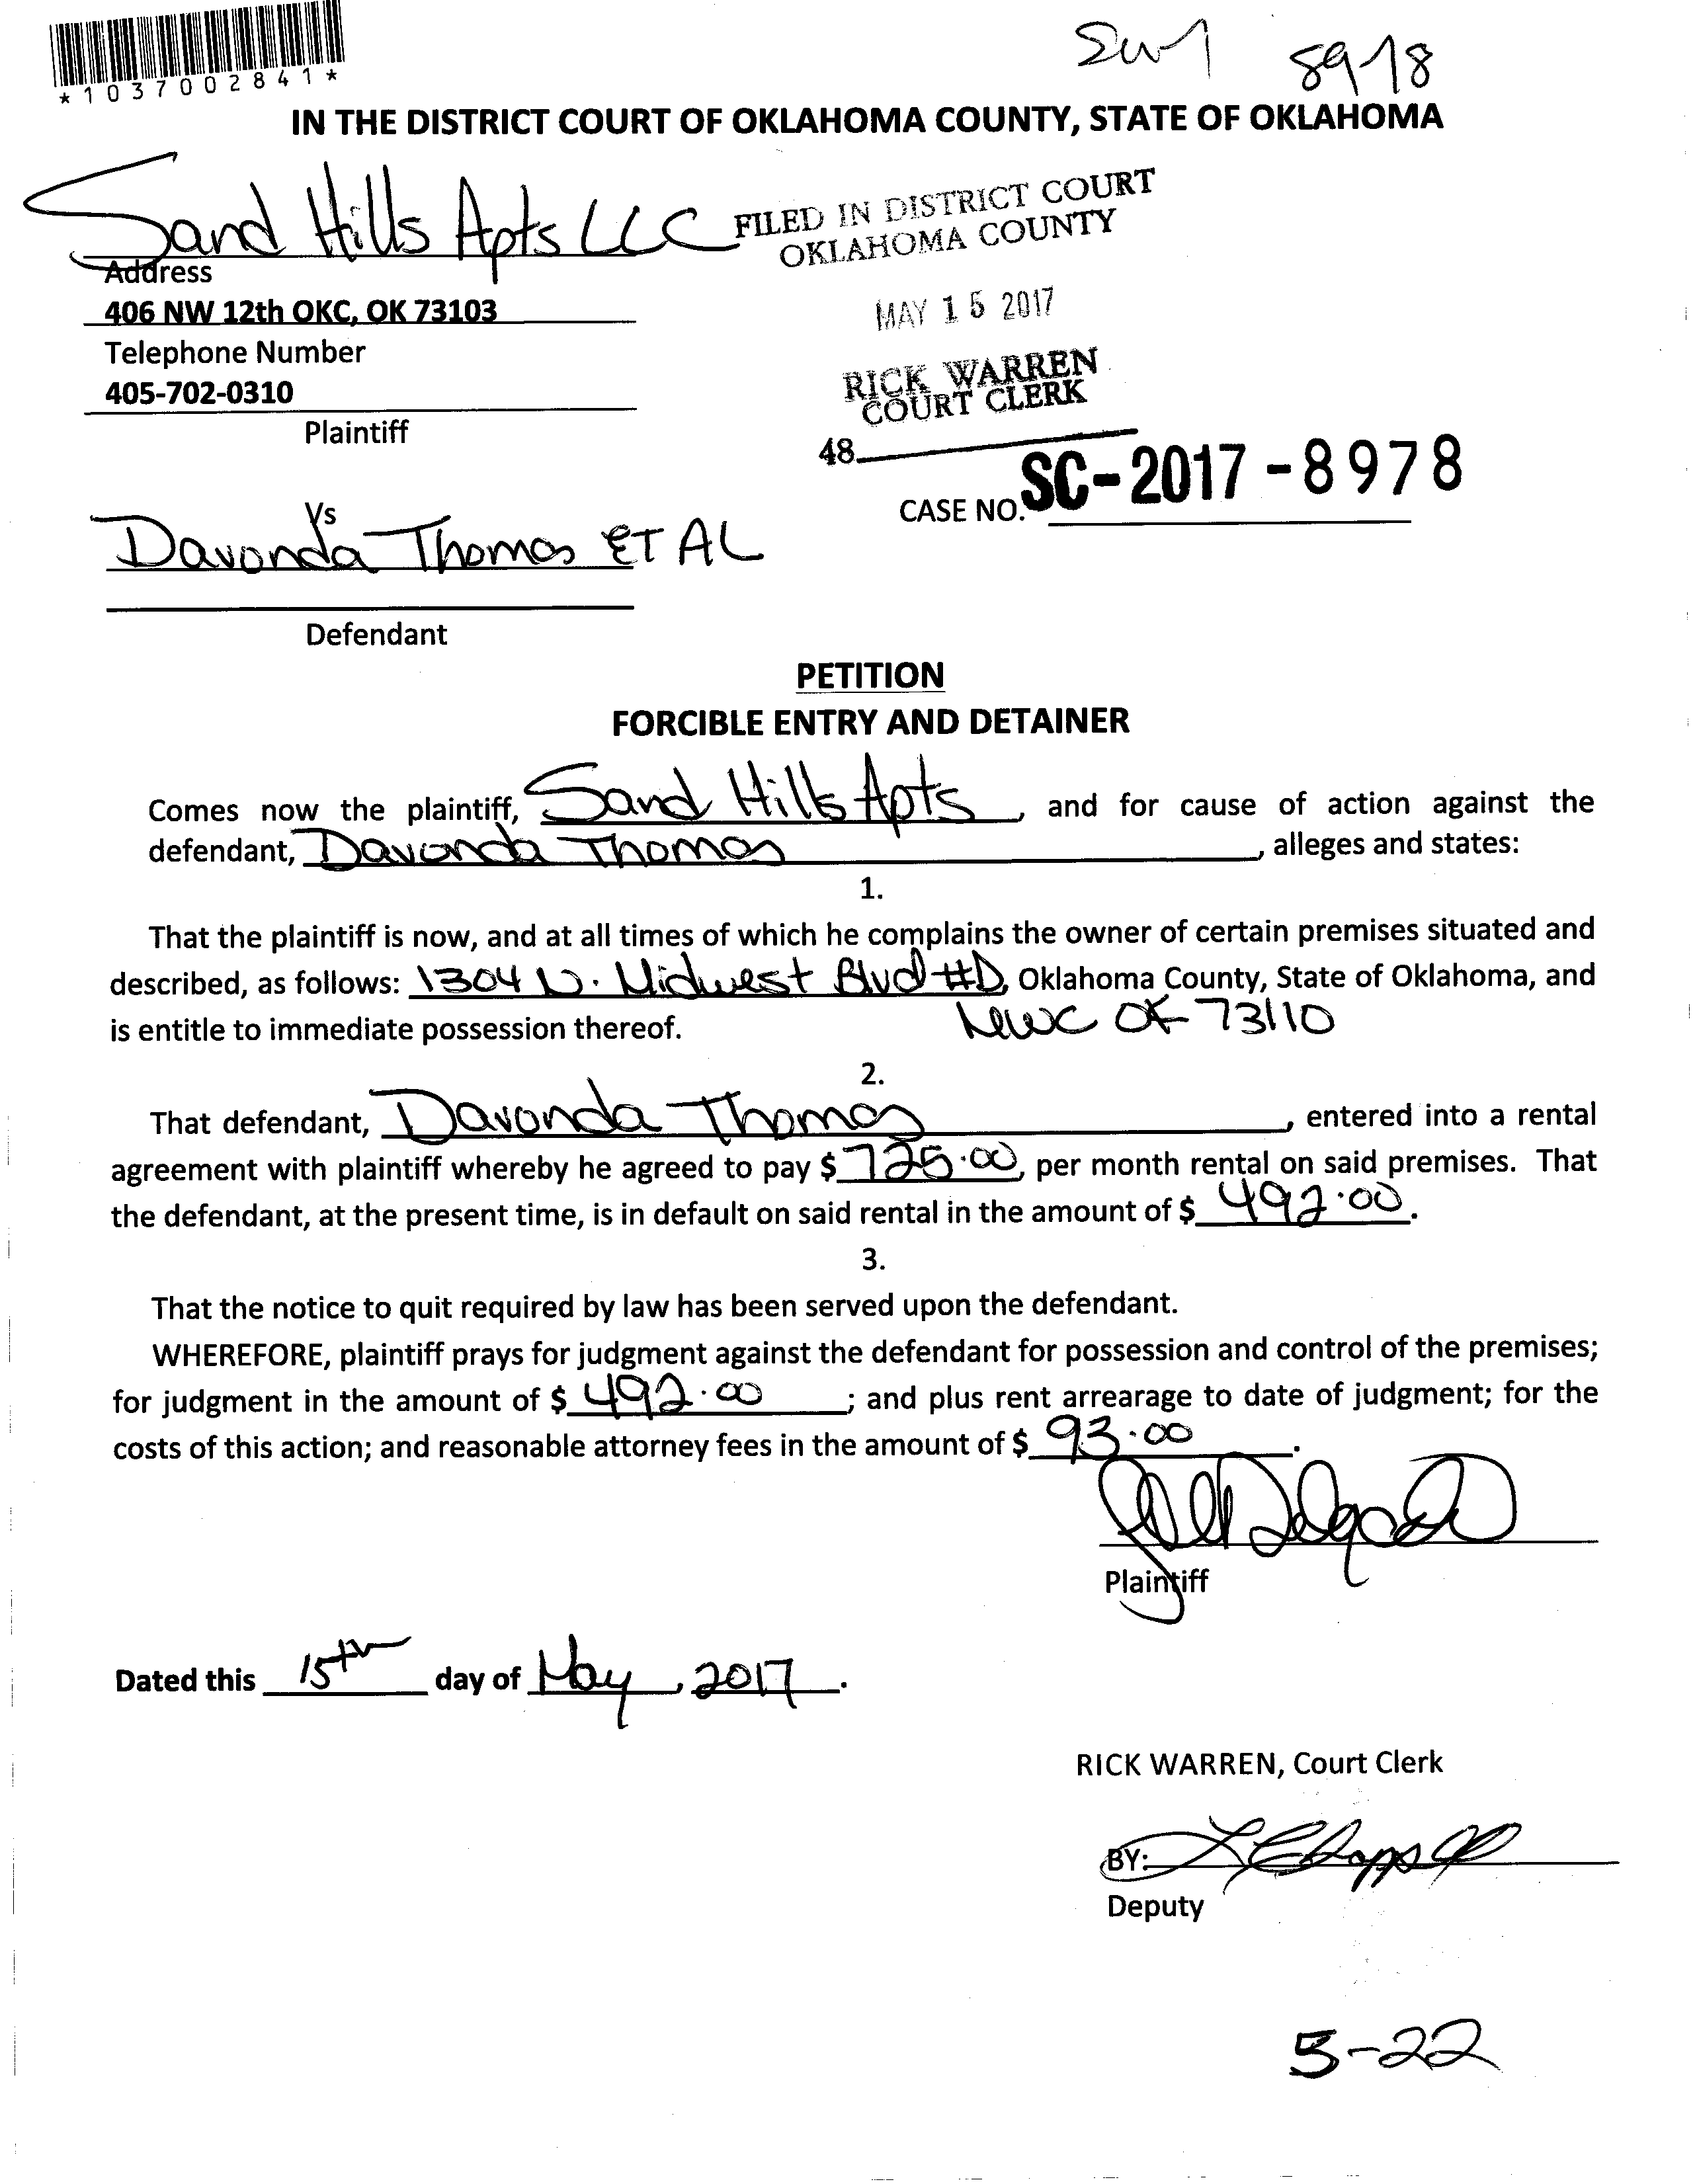 *1037002841*
8978
IN THE DISTRICT COURT OF OKLAHOMA COUNTY, STATE OF OKLAHOMA
Sand Hills Apts LLC
FILED IN DISTRICT COURT
OKLAHOMA COUNTY
Address
406 NW 12th OKC, OK 73103
MAY 15 2017
Telephone Number
405-702-0310
RICK WARREN
COURT CLERK
Plaintiff
48
CASE NO. SC-2017-8978
Vs
Davonda Thomas ET AL
Defendant
PETITION
FORCIBLE ENTRY AND DETAINER
Comes now the plaintiff, Sand Hills Apts, and for cause of action against the
defendant, Davonda Thomas, alleges and states:
1.
That the plaintiff is now, and at all times of which he complains the owner of certain premises situated and
described, as follows: 1304 N. Midwest Blvd #D, Oklahoma County, State of Oklahoma, and
is entitle to immediate possession thereof. MWC OK 73110
2.
That defendant, Davonda Thomas, entered into a rental
agreement with plaintiff whereby he agreed to pay $ 725.00, per month rental on said premises. That
the defendant, at the present time, is in default on said rental in the amount of $ 492.00.
3.
That the notice to quit required by law has been served upon the defendant.
WHEREFORE, plaintiff prays for judgment against the defendant for possession and control of the premises;
for judgment in the amount of $ 492.00; and plus rent arrearage to date of judgment; for the
costs of this action; and reasonable attorney fees in the amount of $ 93.00.
Plaintiff
Dated this 15th day of May, 2017.
RICK WARREN, Court Clerk
BY:
Deputy
5-22